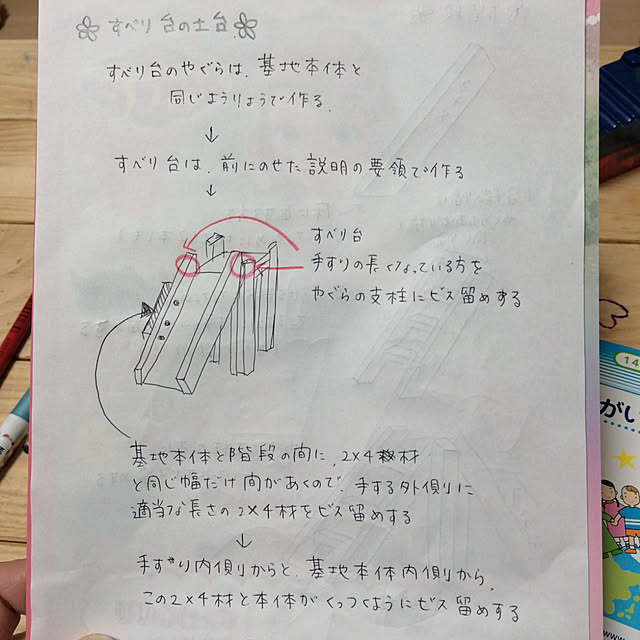 すべり台の土台
すべり台のやぐらは、基地本体と
同じようりょうで作る。
↓
すべり台は、前にのせた説明の要領で作る
↓
すべり台
手すりの長くなっている方を
やぐらの支柱にビス留めする
基地本体と階段の間に、2×4材
と同じ幅だけ間があくので、手する外側りに
適当な長さの2×4材をビス留めする
↓
手すり内側りからと、基地本体内側りから、
この2×4材と本体がくっつくようにビス留めする
14
がい
www